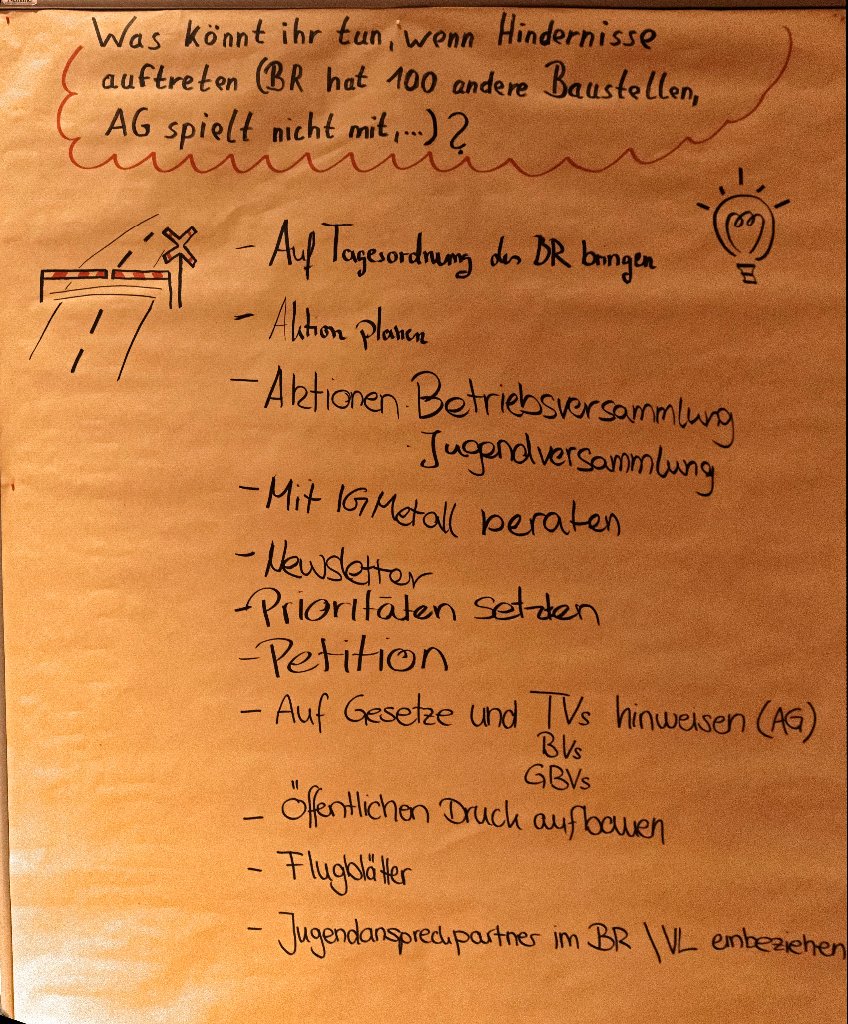 Was könnt ihr tun, wenn Hindernisse
auftreten (BR hat 100 andere Baustellen,
AG spielt nicht mit,...)?
- Auf Tagesordnung des BR bringen
- Aktion planen
- Aktionen Betriebsversammlung
Jugendversammlung
- Mit IG Metall beraten
- Newsletter
- Prioritäten setzen
- Petition
- Auf Gesetze und TVs hinweisen (AG)
BVs
GBVs
- Öffentlichen Druck aufbauen
- Flugblätter
- Jugendansprechpartner im BR \ VL einbeziehen